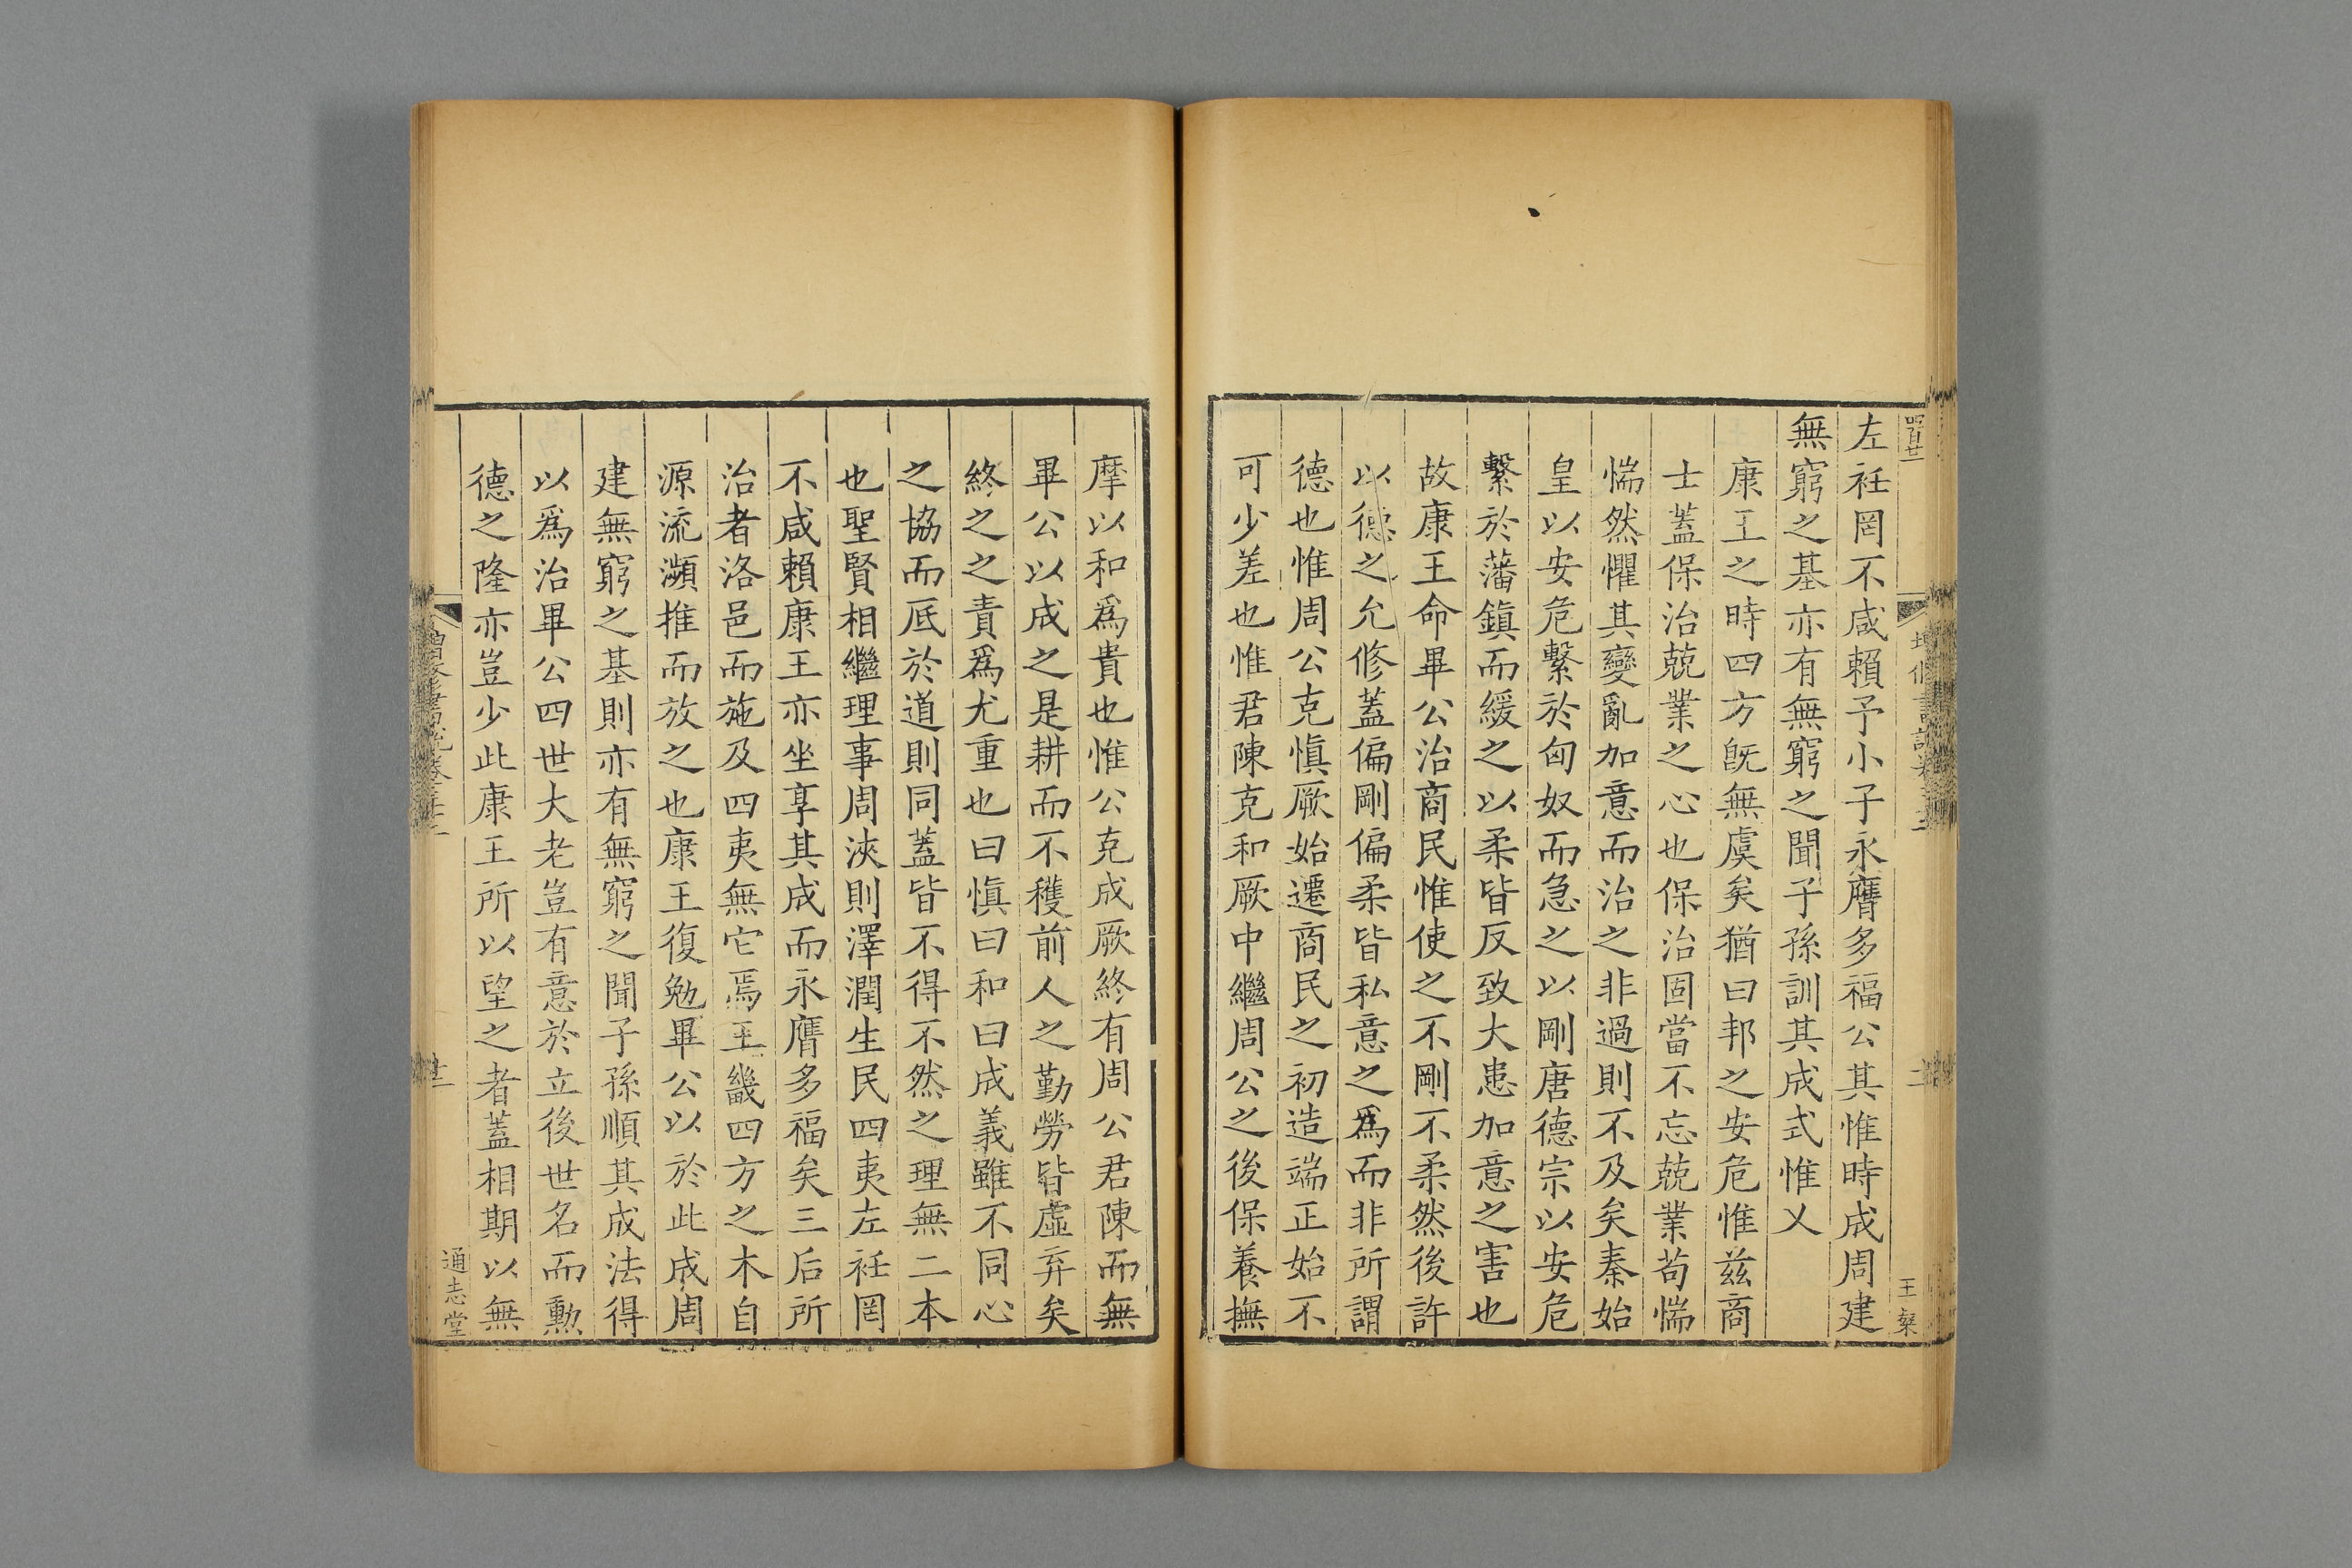 左衽罔不咸賴予小子永膺多福公其惟時成周建
無窮之基亦有無窮之聞子孫訓其成式惟乂
康王之時四方旣無虞矣猶曰邦之安危惟茲商
士蓋保治兢業之心也保治固當不忘兢業苟惴
惴然懼其變亂加意而治之非過則不及矣秦始
皇以安危繫於匈奴而急之以剛唐德宗以安危
繫於藩鎭而緩之以柔皆反致大患加意之害也
故康王命畢公治商民惟使之不剛不柔然後許
以德之允修蓋偏剛偏柔皆私意之爲而非所謂
德也惟周公克愼厥始遷商民之初造端正始不
可少差也惟君陳克和厥中繼周公之後保養撫
王粲
摩以和爲貴也惟公克成厥終有周公君陳而無
畢公以成之是耕而不穫前人之勤勞皆虛弃矣
終之之責爲尤重也曰愼曰和曰成義雖不同心
之協而厎於道則同蓋皆不得不然之理無二本
也聖賢相繼理事周浹則澤潤生民四夷左衽罔
不咸賴康王亦坐享其成而永膺多福矣三后所
治者洛邑而施及四夷無它焉王畿四方之木自
源流瀕推而放之也康王復勉畢公以於此成周
建無窮之基則亦有無窮之聞子孫順其成法得
以爲治畢公四世大老豈有意於立後世名而勲
德之隆亦豈少此康王所以望之者蓋相期以無
通志堂